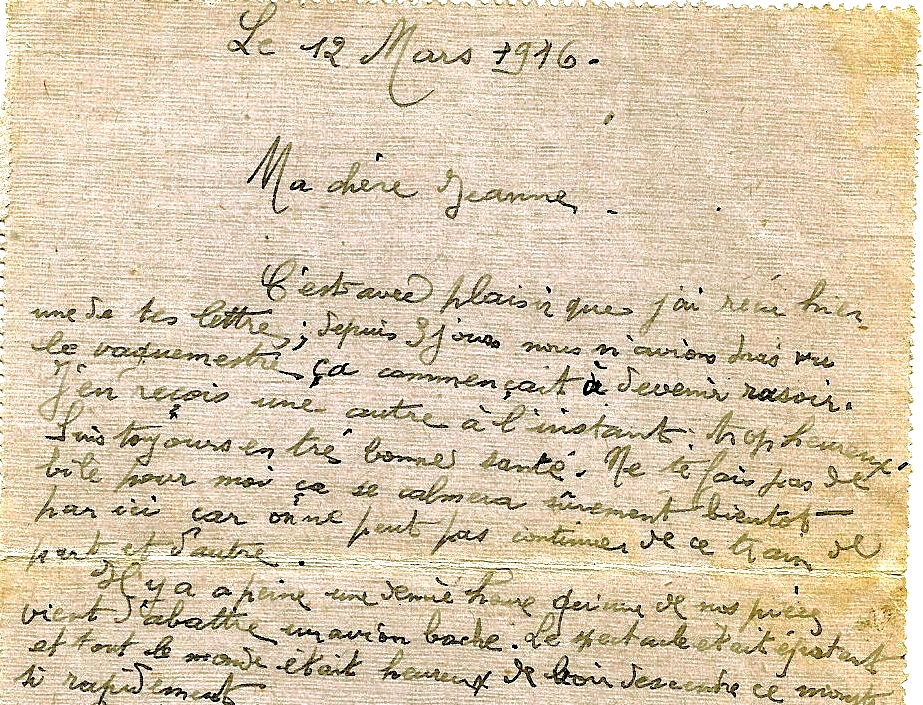 Le 12 Mars 1916.
Ma chère Jeanne.
C'est avec plaisir que j'ai reçu hier
une de tes lettre; depuis 3 jours nous n'avions pas vu
le vaguemestre, ça commençait à devenir rasoir.
J'en reçois une autre à l'instant: trop heureux.
Suis toujours en trè bonne santé. Ne te fais pas de
bile pour moi ça se calmera sûrement bientot
par ici car on ne peut pas continuer de ce train de
part et d'autre.
Il y a a peine une demie heure qu'une de nos pièces
vient d'abattre un avion boche. Le spectacle était épatant
et tout le monde était heureux de voir descendre ce
si rapidement